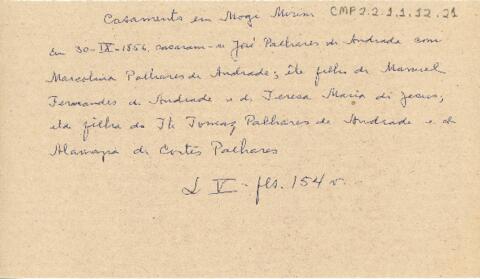 Casamento em Mogi Mirim CMP2.2.1.1.12.21
Em 30-IX-1856, casaram-se José Palhares de Andrade com
Marcolina Palhares de Andrade; êle filho de Manuel
Fernandes de Andrade e de Teresa Maria de Jesus,
ela filha do Te Tomaz Palhares de Andrade e de
de Cortes Palhares
L V - fls. 154 v.